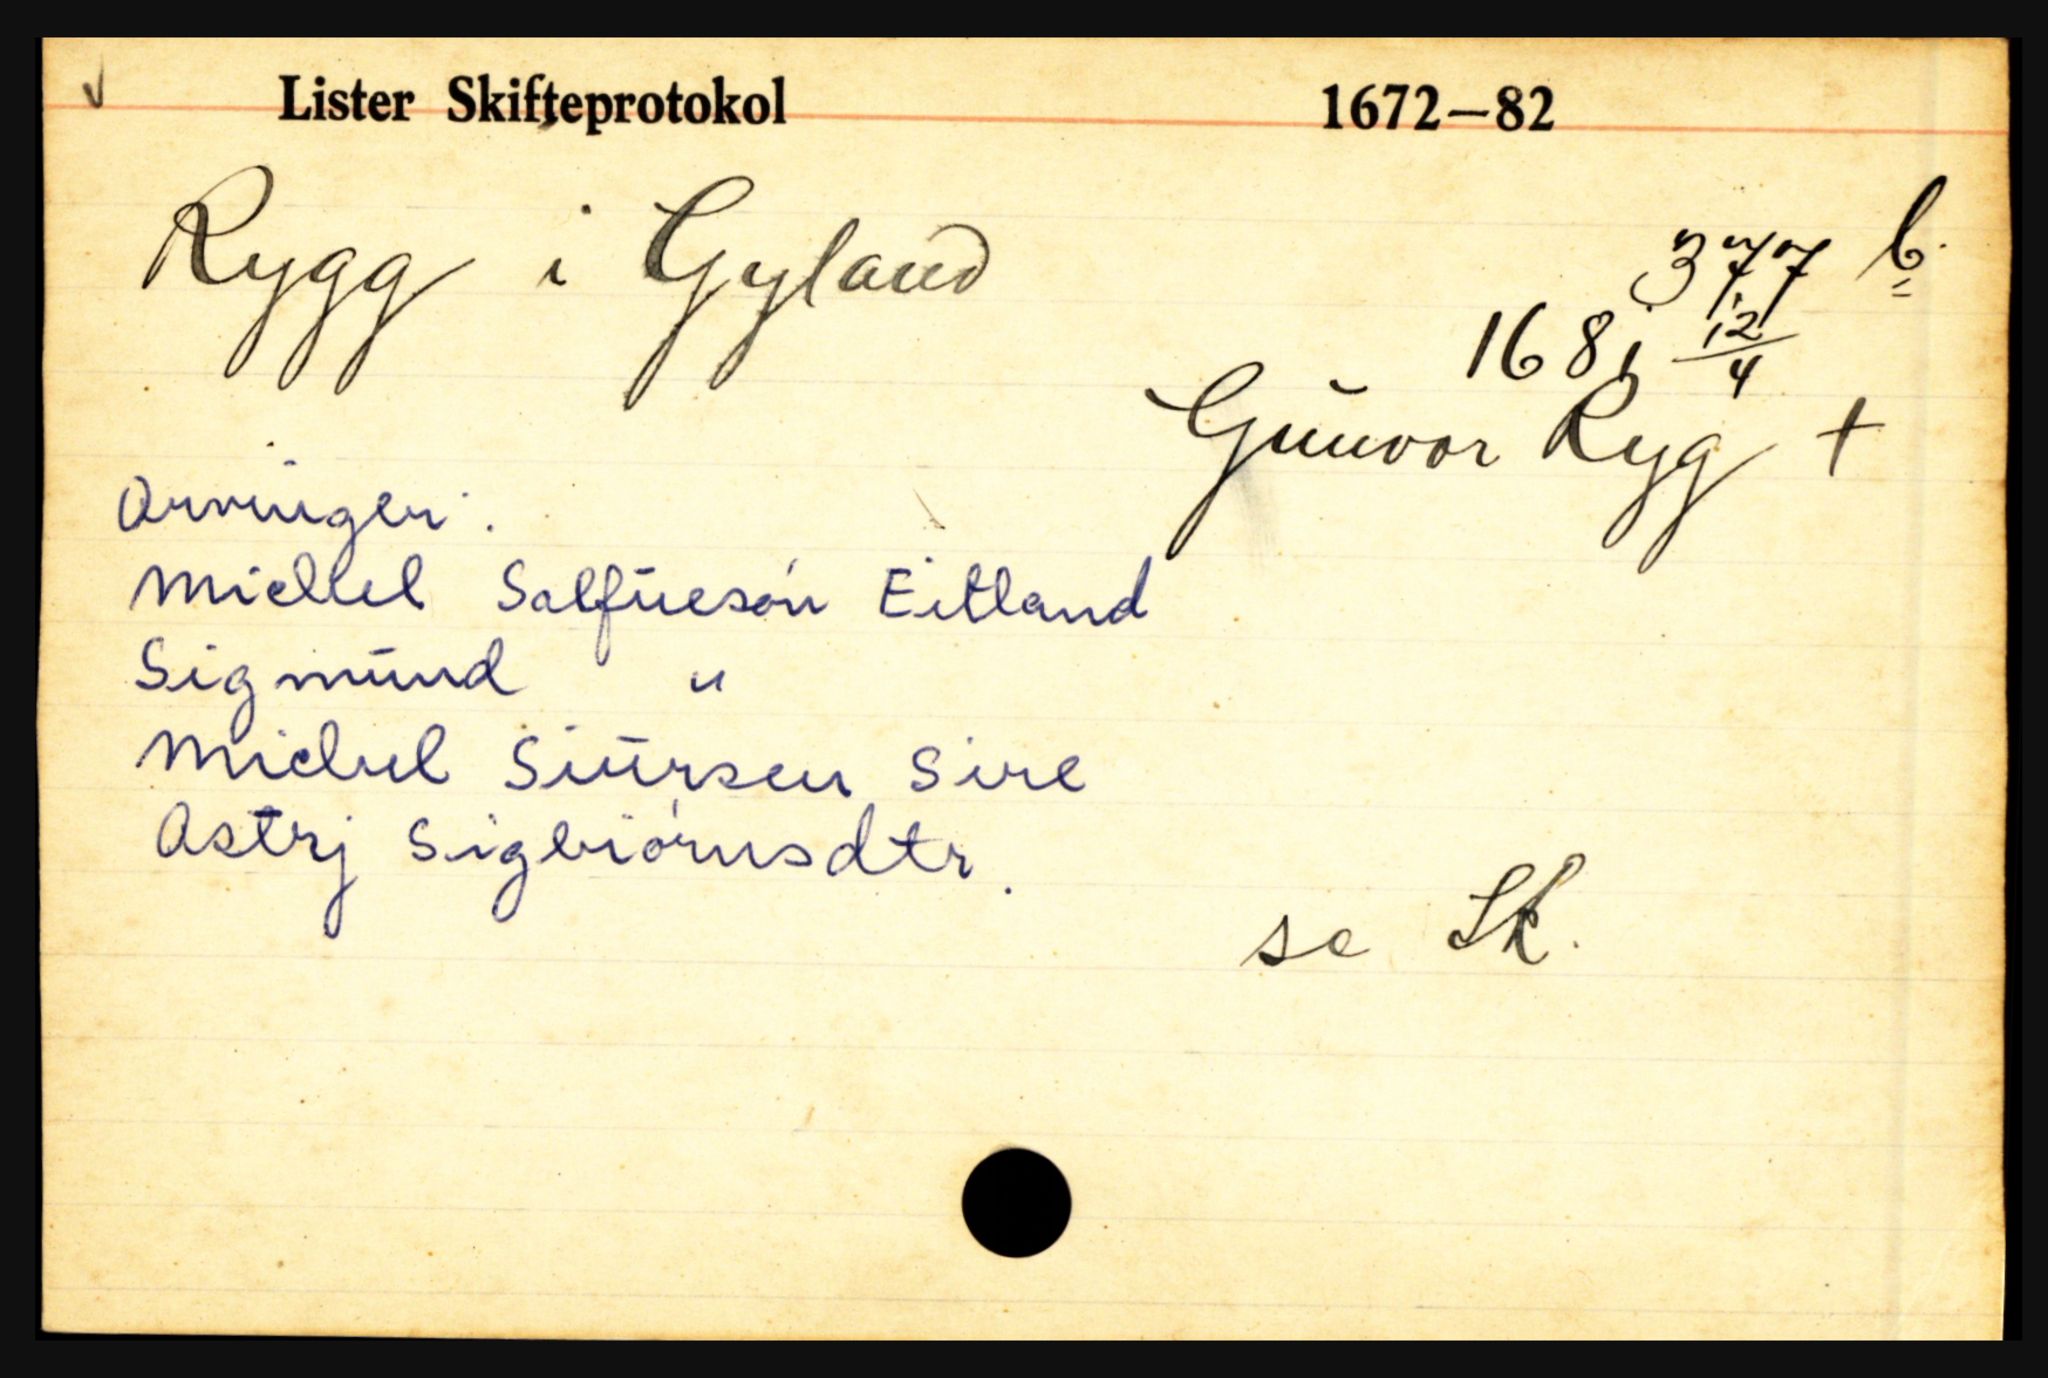 Lister Skifteprotokol 1672–82
Rygg i Gyland
377 b.
1681 12/4
Gunvor Ryg +
Arvinger:
Michel Salfuesøn Eitland
Sigmund "
Michel Siursen Sire
Astrj Sigbiørnsdtr.
se Sk.